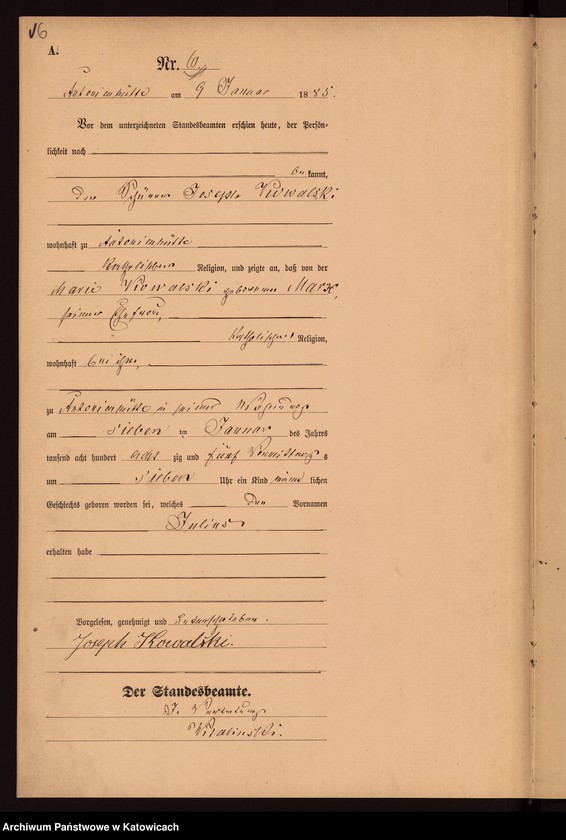 V6
A.
Nr. 6
Antonienhütte am 9 Januar 1885.
Vor dem unterzeichneten Standesbeamten erschien heute, der Persön-
lichkeit nach
be kannt,
der Joseph Kowalski
wohnhaft zu Antonienhütte
katholischer Religion, und zeigte an, daß von der
Marie Kowalski geborenen Marx,
seiner Ehefrau,
katholischer Religion,
wohnhaft bei ihm,
zu Antonienhütte in seiner Wohnung
am sieben ten Januar des Jahres
tausend acht hundert acht zig und fünf Vormittags
um sieben Uhr ein Kind männ lichen
Geschlechts geboren worden sei, welches den Vornamen
Julius
erhalten habe
Vorgelesen, genehmigt und unterschrieben.
Joseph Kowalski.
Der Standesbeamte.
In Vertretung
Archiwum Państwowe w Katowicach